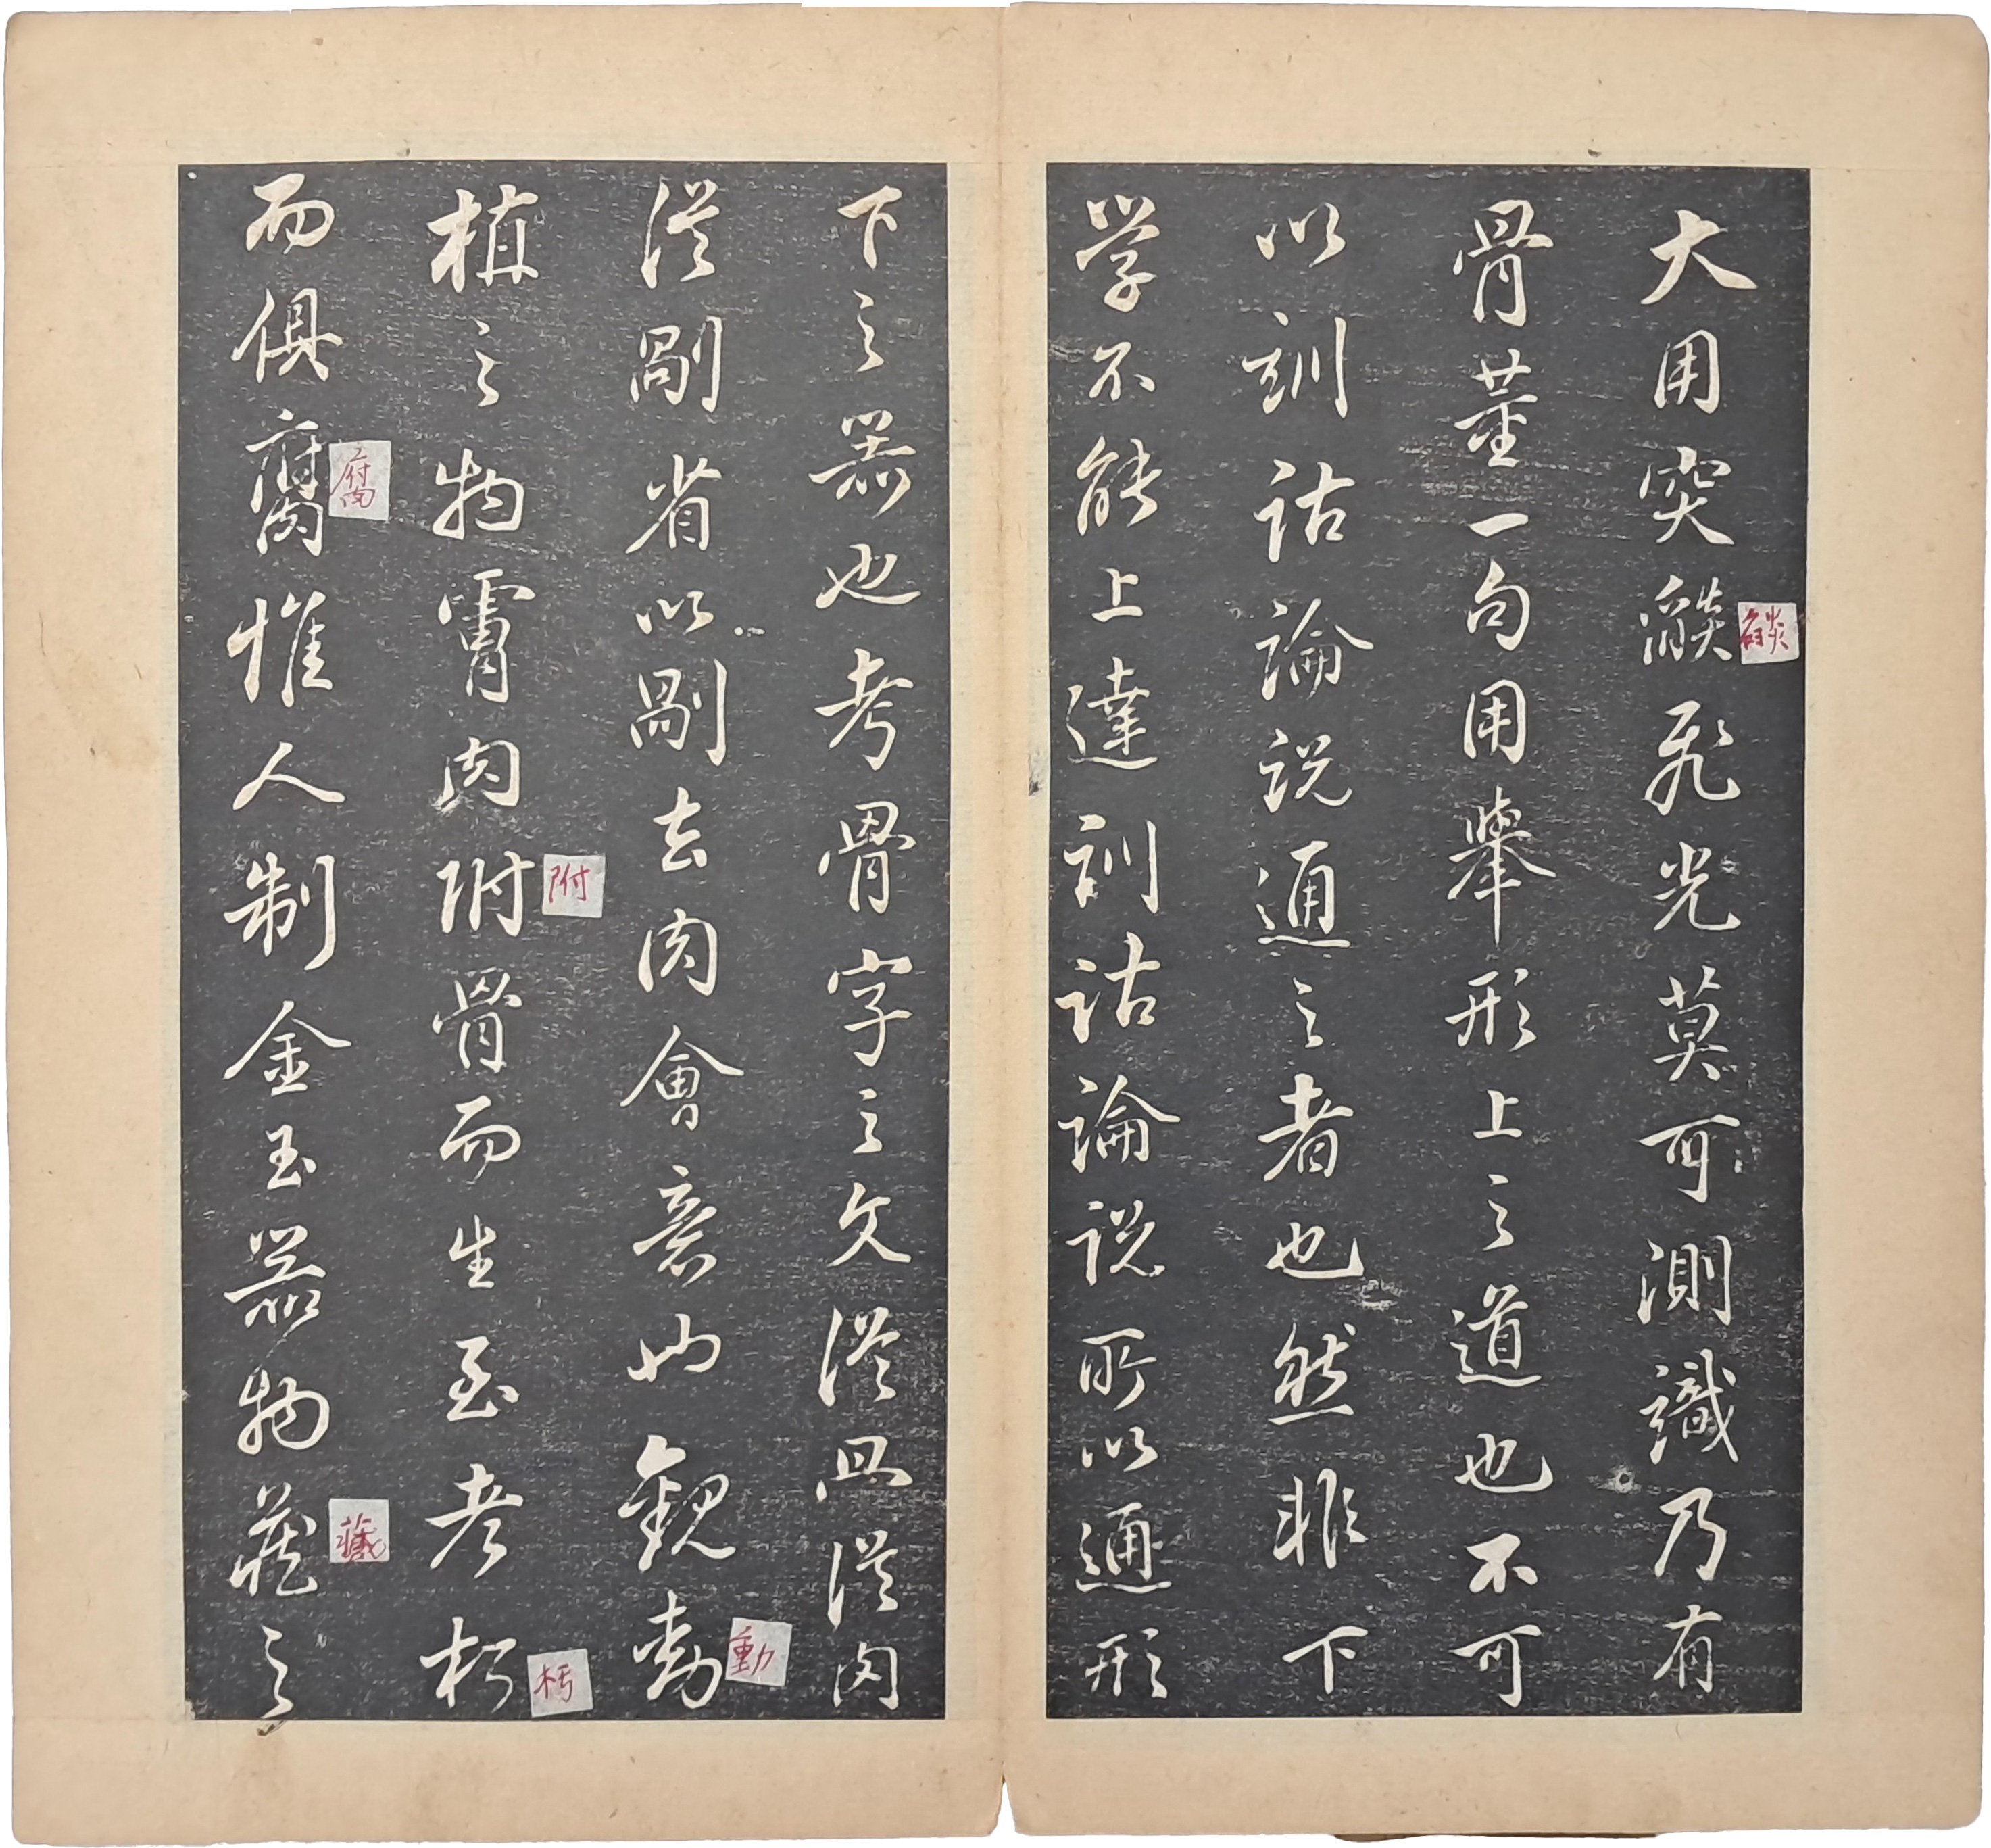 大用突燄飛光莫可測識乃有
燄
骨董一句用舉形上之道也不可
以訓詁論説通之者也然非下
学不能上達訓詁論説所以通形
下之器也考骨字之文從冎從肉
從剮省以剮去肉會意也觀動
動
植之物膚肉附骨而生至老朽
附
朽
而俱腐惟人制金玉器物藏之
腐
藏